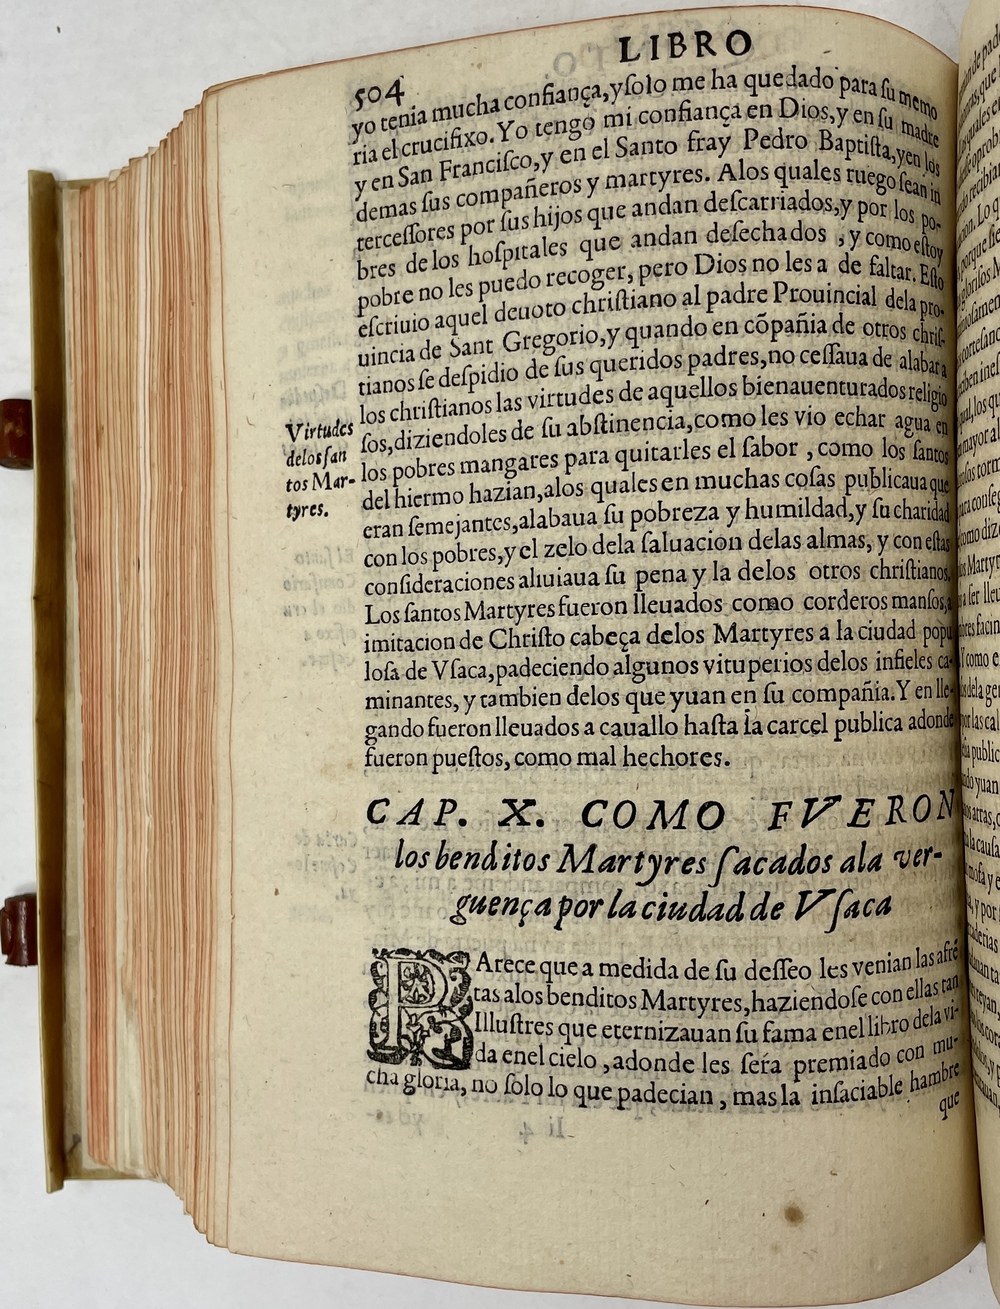 504
LIBRO
yo tenia mucha confiança,y ſolo me ha quedado para ſu memo
ria el crucifixo. Yo tengo mi confiança en Dios,y en ſu madre
y en San Franciſco,y en el Santo fray Pedro Baptiſta,y en los
demas ſus compañeros y martyres. Alos quales ruego ſean in
terceſſores por ſus hijos que andan deſcarriados,y por los po-
bres delos hoſpitales que andan deſechados , y como eſtoy
pobre no les puedo recoger, pero Dios no les a de faltar. Eſto
eſcriuio aquel deuoto chriſtiano al padre Prouincial dela pro-
uincia de Sant Gregorio,y quando en cõpañia de otros chriſ-
tianos ſe deſpidio de ſus queridos padres,no ceſſaua de alabar a
los chriſtianos las virtudes de aquellos bienauenturados religio
ſos,diziendoles de ſu abſtinencia,como les vio echar agua en
los pobres mangares para quitarles el ſabor , como los ſantos
del hiermo hazian,alos quales en muchas coſas publicaua que
eran ſemejantes,alabaua ſu pobreza y humildad,y ſu charidad
con los pobres,y el zelo dela ſaluacion delas almas, y con eſtas
conſideraciones aliuiaua ſu pena y la delos otros chriſtianos.
Los ſantos Martyres fueron lleuados como corderos manſos,a
imitacion de Chriſto cabeça delos Martyres a la ciudad popu
loſa de Vſaca,padeciendo algunos vituperios delos infieles ca-
minantes, y tambien delos que yuan en ſu compañia. Y en lle-
gando fueron lleuados a cauallo haſta la carcel publica adonde
fueron pueſtos, como mal hechores.
Virtudes
delos ſan
tos Mar-
tyres.
CAP. X. COMO FVERON
los benditos Martyres ſacados ala ver-
guença por la ciudad de Vſaca
PArece que a medida de ſu deſſeo les venian las afrē
tas alos benditos Martyres,haziendoſe con ellas tan
Illuſtres que eternizauan ſu fama enel libro dela vi-
da enel cielo , adonde les ſera premiado con mu-
cha gloria, no ſolo lo que padecian , mas la inſaciable hambre
que